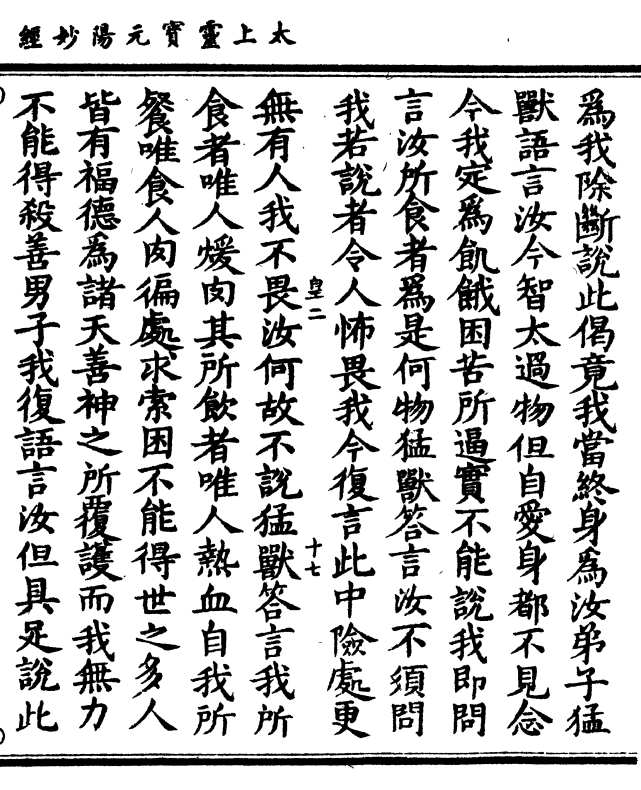 太上靈寶元陽妙經
爲我除斷說此偈竟我當終身爲汝弟子猛
獸語言汝今智太過物但自愛身都不見念
今我定爲飢餓困苦所逼實不能說我即問
言汝所食者爲是何物猛獸答言汝不須問
我若說者令人怖畏我今復言此中險處更
皇二
十七
無有人我不畏汝何故不說猛獸答言我所
食者唯人煖肉其所飲者唯人熱血自我所
餐唯食人肉徧處求索困不能得世之多人
皆有福德爲諸天善神之所覆護而我無力
不能得殺善男子我復語言汝但具足說此